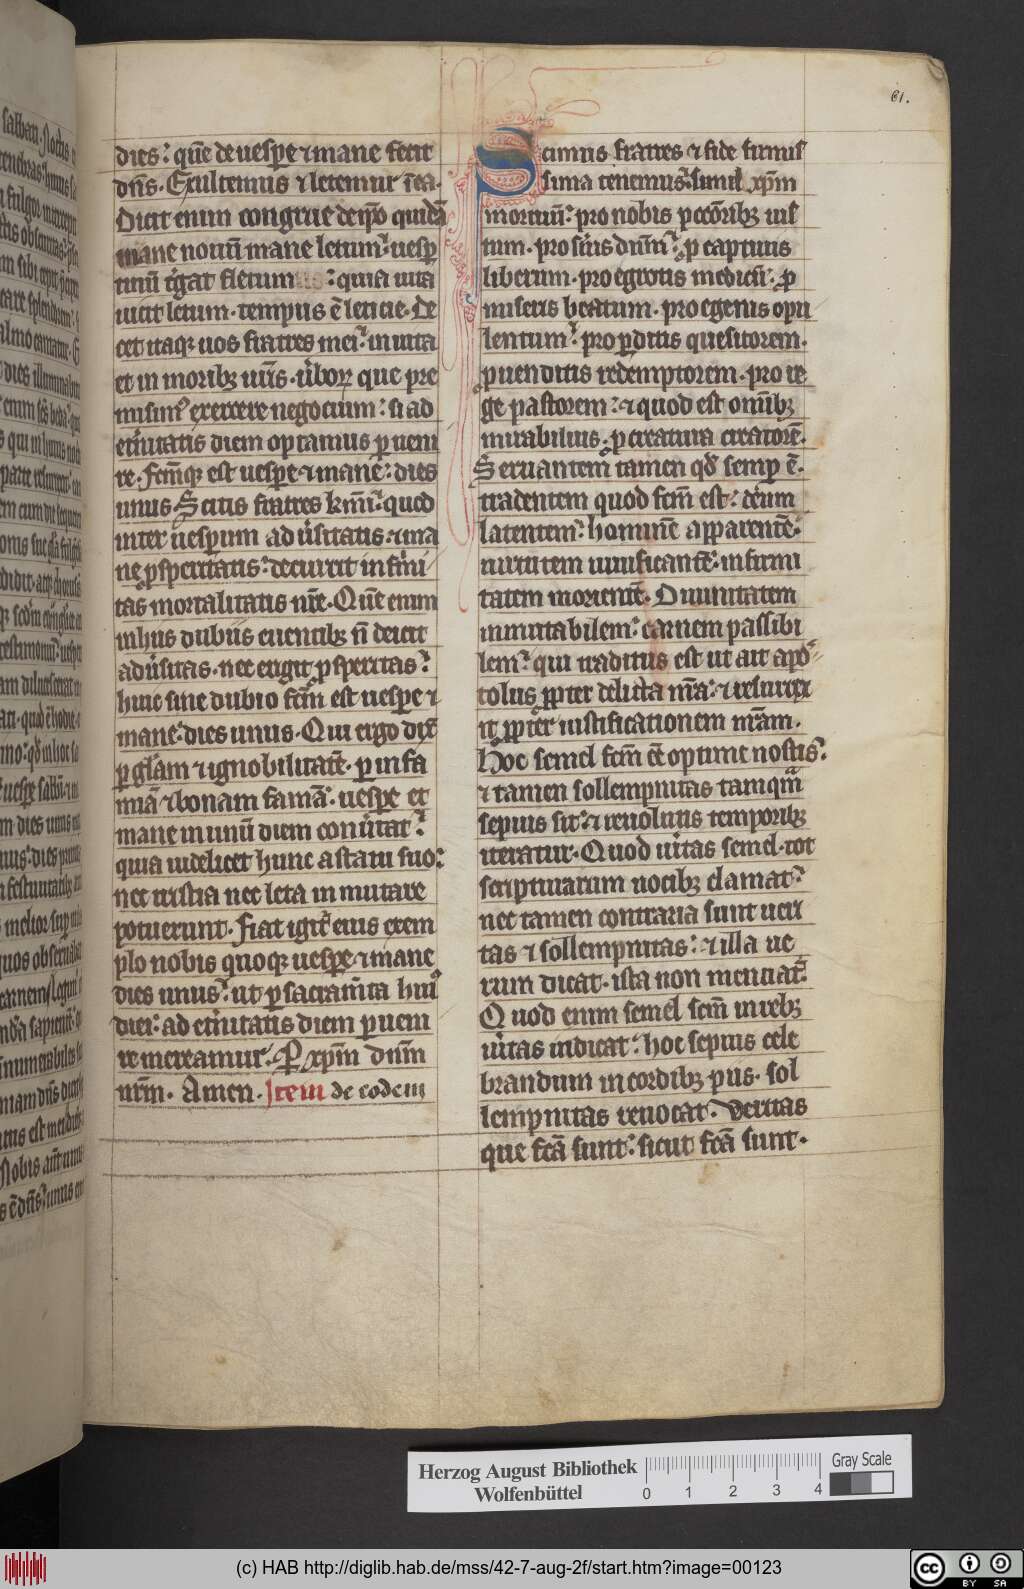 61.
dies: que̅ de uesp̲e ⁊ mane fecit
dn̅s. Exultemus ⁊ letemur i̅ ea.
Dicit enim congrue de ip̅o quida̅
mane nouu̅ mane letum: uesp̲
tinu̅ t'gat fletum : quia uita
uicit letum. tempus e̅ leticie. De
cet itaq; uos fratres mei: in uita
et in morib; ur̅is. u̅boꝝ que pre
misim᷒ exercere negocium: si ad
et̅nitatis diem optamus p̲ueni
re. Fcm̅q; est uesp̲e ⁊ mane: dies
unus. Scitis fratres k̅mi: quod
inter uesp̲um adu̅sitatis ⁊ ma
ne p̲sp̲eritatis: decurrit infirmi
tas mortalitatis nr̅e. Que̅ enim
in hiis dubiis euentib; n̅ deicit
adu̅sitas. nec erigit p̲speritas:
huic sine dubio fcm̅ est uesp̲e ⁊
mane: dies unus. Qui ergo dix̅
p̲ gl̅am ⁊ ignobilitate̅. p̲ infa
mia̅ ⁊ bonam fama̅: uesp̲e et
mane in unu̅ diem conu̅tat:
quia uidelicet hunc a statu suo:
nec tristia nec leta inmutare
potuerunt. Fiat igit̅ eius exem
plo nobis quoq; uesp̲e ⁊ mane
dies unus: ut p̲ sacram̅ta hui᷒
diei: ad et̅nitatis diem p̲ueni
re mereamur. P̲ xp̅m dn̅m
nr̅m. Amen. Item de eodem
Scimus fratres ⁊ fide firmis
sima tenemus: simul xp̅m
mortuu̅: pro nobis p̲cc̅orib; ius
tum. pro s̅uis dn̅m: p̲ captiuis
liberum. pro egrotis medicu̅: p̲
miseris beatum. pro egenis opu
lentum: pro p̲ditis quesitorem.
p̲ uenditis redemptorem. pro re
ge pastorem: ⁊ quod est omib;
mirabilius. p̲ creatura creatore̅.
Seruantem tamen qd̅ semp̲ e̅.
tradentem quod fcm̅ est: d̅eum
latentem: homine̅ apparente̅:
uirtutem uiuificante̅: infirmi
tatem moriente̅. Diuinitatem
inmutabilem: carnem passibi
lem: qui traditus est ut ait apo̅
tolus p̲pter delicta nr̅a: ⁊ resurrex
it p̲pter iustificationem nr̅am.
Hoc semel fcm̅ e̅e optime nostis:
⁊ tamen sollempnitas tamqua̅
sepius sit: ⁊ reuolutis temporib;
iteratur. Quod u̅itas semel. tot
scripturarum uocib; clamat:
nec tamen contraria sunt ueri
tas ⁊ sollempnitas: ⁊ illa ue
rum dicat. ista non mentiat̅:
Quod enim semel fcm̅ in reb;
u̅itas indicat: hoc sepius cele
brandum in cordib; piis. sol
lempnitas reuocat. Veritas
que fca̅ sunt: sicut fca̅ sunt.
Herzog August Bibliothek
Wolfenbüttel
0 1 2 3 4
Gray Scale
(c) HAB http://diglib.hab.de/mss/42-7-aug-2f/start.htm?image=00123
cc BY SA